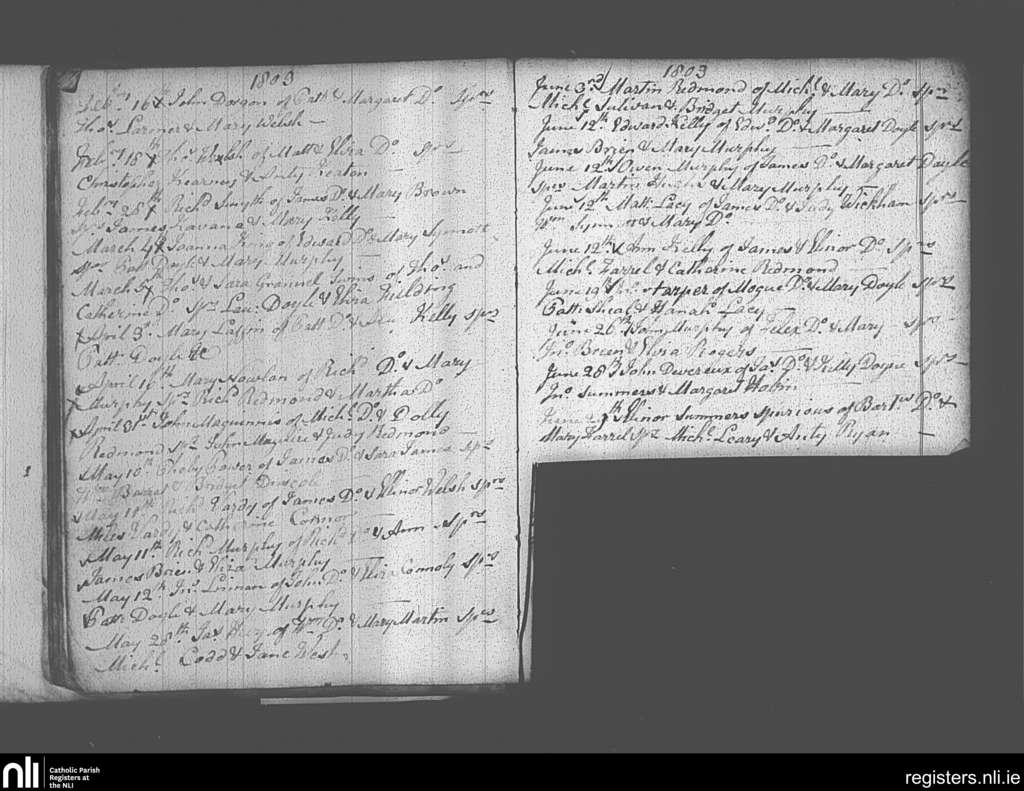 1803
Feb.ry 16th John Dorgan of Patt & Margaret Do. Spors
Thos. Larner & Mary Welsh —
Feb.ry 18th Thos. Welsh of Matt & Eliza Do. Sprs
Christopher Kearney & Anty Keaton
Feb.ry 28th Richd Smyth of James Do. & Mary Brown
Sprs James Kavana & Mary Kelly —
March 4th Joanna King of Edward Do. & Mary Synnott
Spors Patt Doyle & Mary Murphy —
March 5th Thos. & Sara of Thos. and
Catherine Do. Sprs Lau: Doyle & Eliza Fielding
April 3d. Mary of Patt Do. & Kelly Sprs
Patt. Doyle &c
April 16th Mary Nowlan of Richd Do. & Mary
Murphy Sprs Richd Redmond & Martha Do
April Maguennis of Michl. Do. & Dolly
Redmond Sprs John Maguire & Judy Redmond —
May 10th Power of James Do. & Sara Sprs
Barret & Bridget Driscol
May Richd. Hardy of James Do. & Ellinor Welsh Sprs
Miles Hardy & Catherine Connor
May 11th Richd Murphy of Richd Do & Ann Sprs
James Brien & Eliza Murphy —
May 12th Jno. of John Do. & Eliz Connoly Sprs
Patt Doyle & Mary Murphy —
May 28th Jas of Wm Do. & Mary Martin Sprs
Michl. Codd & Jane West
1803
June 3rd Martin Redmond of Michl & Mary Do. Sprs
Michl Sulivan & Bridget Murphy —
June 12th Edward Kelly of Edwd. Do. & Margaret Doyle Sprs
James Brien & Mary Murphy —
June 12th Owen Murphy of James Do. & Margaret Doyle
Sprs Martin & Mary Murphy —
June 12th Matt. Lacy of James Do. & Judy Wickham Sprs
Wm Synnott & Mary Do.
June 12th Ann Kelly of James & Elinor Do Sprs
Michl Farrel & Catherine Redmond
June 19 Harper of Mogue Do. & Mary Doyle Sprs
Patt & Hanah Lacy —
June 26th Murphy of Felex Do. & Mary — Sprs
Jno. Breen & Eliza Rogers
June 28 John Devereux of Jas Do. & Kitty Doyle Sprs
Jno Summers & Margaret Hobin —
June Ellinor Summers Spurious of Bartw Do. &
Mary Farrel Sprs Michl. Leary & Anty Ryan —
nli
Catholic Parish
Registers at
the NLI
registers.nli.ie